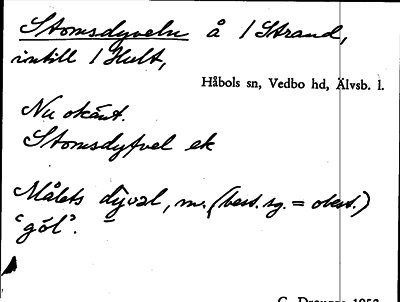 Stomsdyveln å 1 Strand,
intill 1 Hult,
Håbols sn, Vedbo hd, Älvsb. l.
Nu okänt.
Stomsdyfvel ek
Målets dyvəl, m. (best. sg. = obest.)
'göl'.